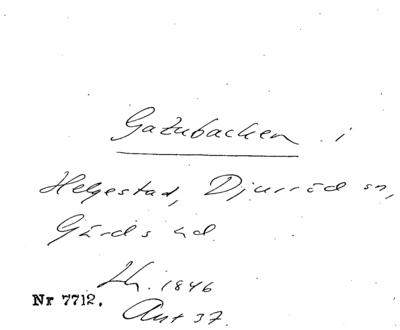 Gatubacken i
Helgestad, Djurröd sn,
Gärds hd.
Lh. 1846
Nr 7712.
Avt 37.